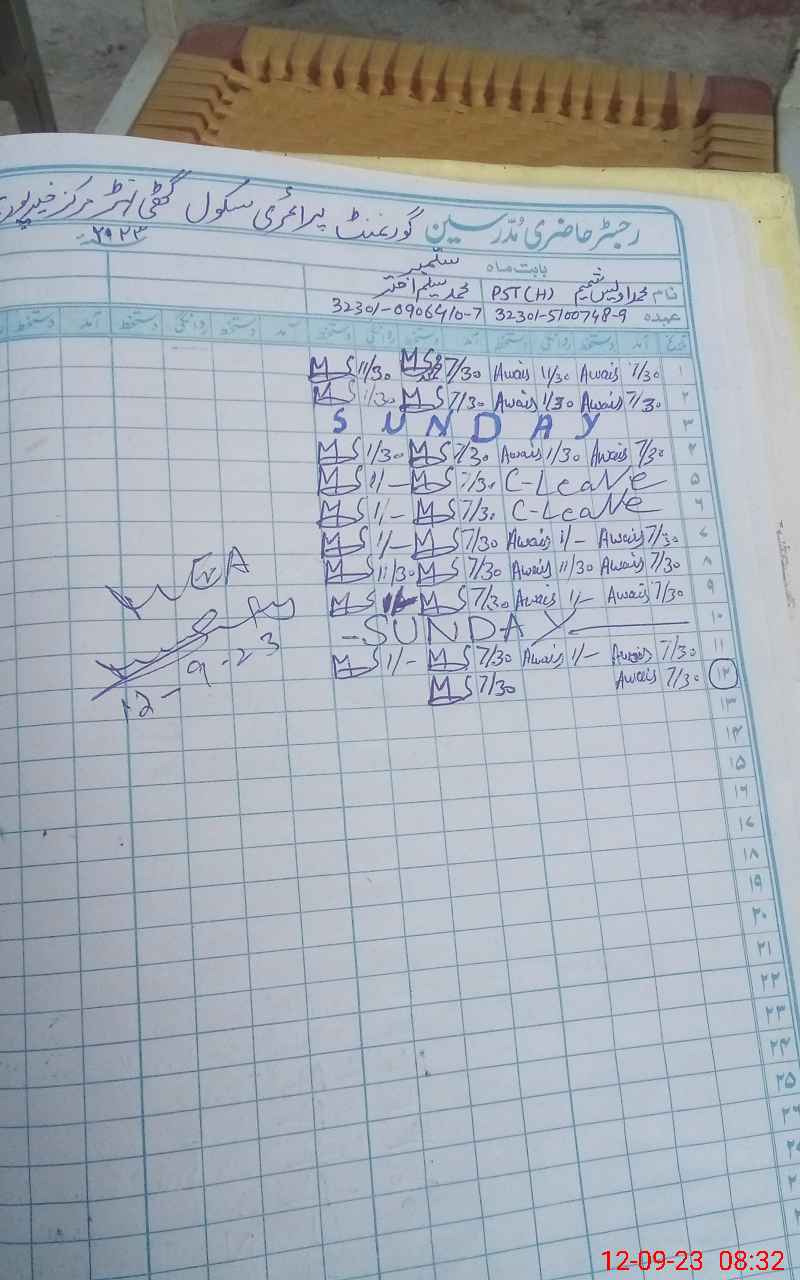 رجسٹر حاضری مُدّرسین گورنمنٹ پرائمری سکول گھٹی اتر مرکز خیرپور
بابت ماہ ستمبر ۲۰۲۳ء
نام محمد اویس شمیم PST(H) محمد سلیم اختر
عہدہ 32301-5100748-9 32301-0906410-7
تاریخ آمد دستخط روانگی دستخط آمد دستخط روانگی دستخط آمد دستخط روانگی دستخط آمد دستخط
۱ 7/30 Awais 11/30 Awais 7/30 MS 11/30 MS
۲ 7/30 Awais 1/30 Awais 7/30 MS 1/30 MS
۳ SUNDAY
۴ 7/30 Awais 1/30 Awais 7/30 MS 1/30 MS
۵ C-Leave 7/30 MS 1/- MS
۶ C-Leave 7/30 MS 1/- MS
۷ 7/30 Awais 1/- Awais 7/30 MS 1/- MS
۸ 7/30 Awais 11/30 Awais 7/30 MS 11/30 MS
۹ 7/30 Awais 1/- Awais 7/30 MS 1/- MS
۱۰ -SUNDAY-
۱۱ 7/30 Awais 1/- Awais 7/30 MS 1/- MS
۱۲ 7/30 Awais 7/30 MS
12-9-23
۱۳
۱۴
۱۵
۱۶
۱۷
۱۸
۱۹
۲۰
۲۱
۲۲
۲۳
۲۴
۲۵
۲۶
12-09-23 08:32